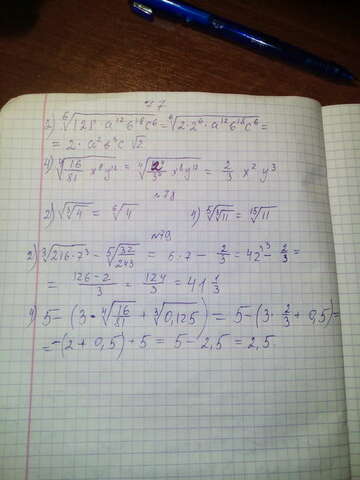 №7
2) ⁶√(128 · a¹² b¹⁸ c⁶) = ⁶√(2·2⁶ · a¹² b¹⁸ c⁶) =
= 2 · a² b³ c √2
4) ⁴√(16/81 x⁸ y¹²) = ⁴√(2⁴/3⁴ x⁸ y¹²) = 2/3 x² y³
№78
2) √(³√4) = ⁶√4 4) ⁵√(³√11) = ¹⁵√11
№79
2) ³√(216 · 7³) − ⁵√(32/243) = 6·7 − 2/3 = 42³ − 2/3 =
= (126−2)/3 = 124/3 = 41 1/3
4) 5 − (3 · ⁴√(16/81) + ³√0,125) = 5 − (3 · 2/3 + 0,5) =
= −(2 + 0,5) + 5 = 5 − 2,5 = 2,5